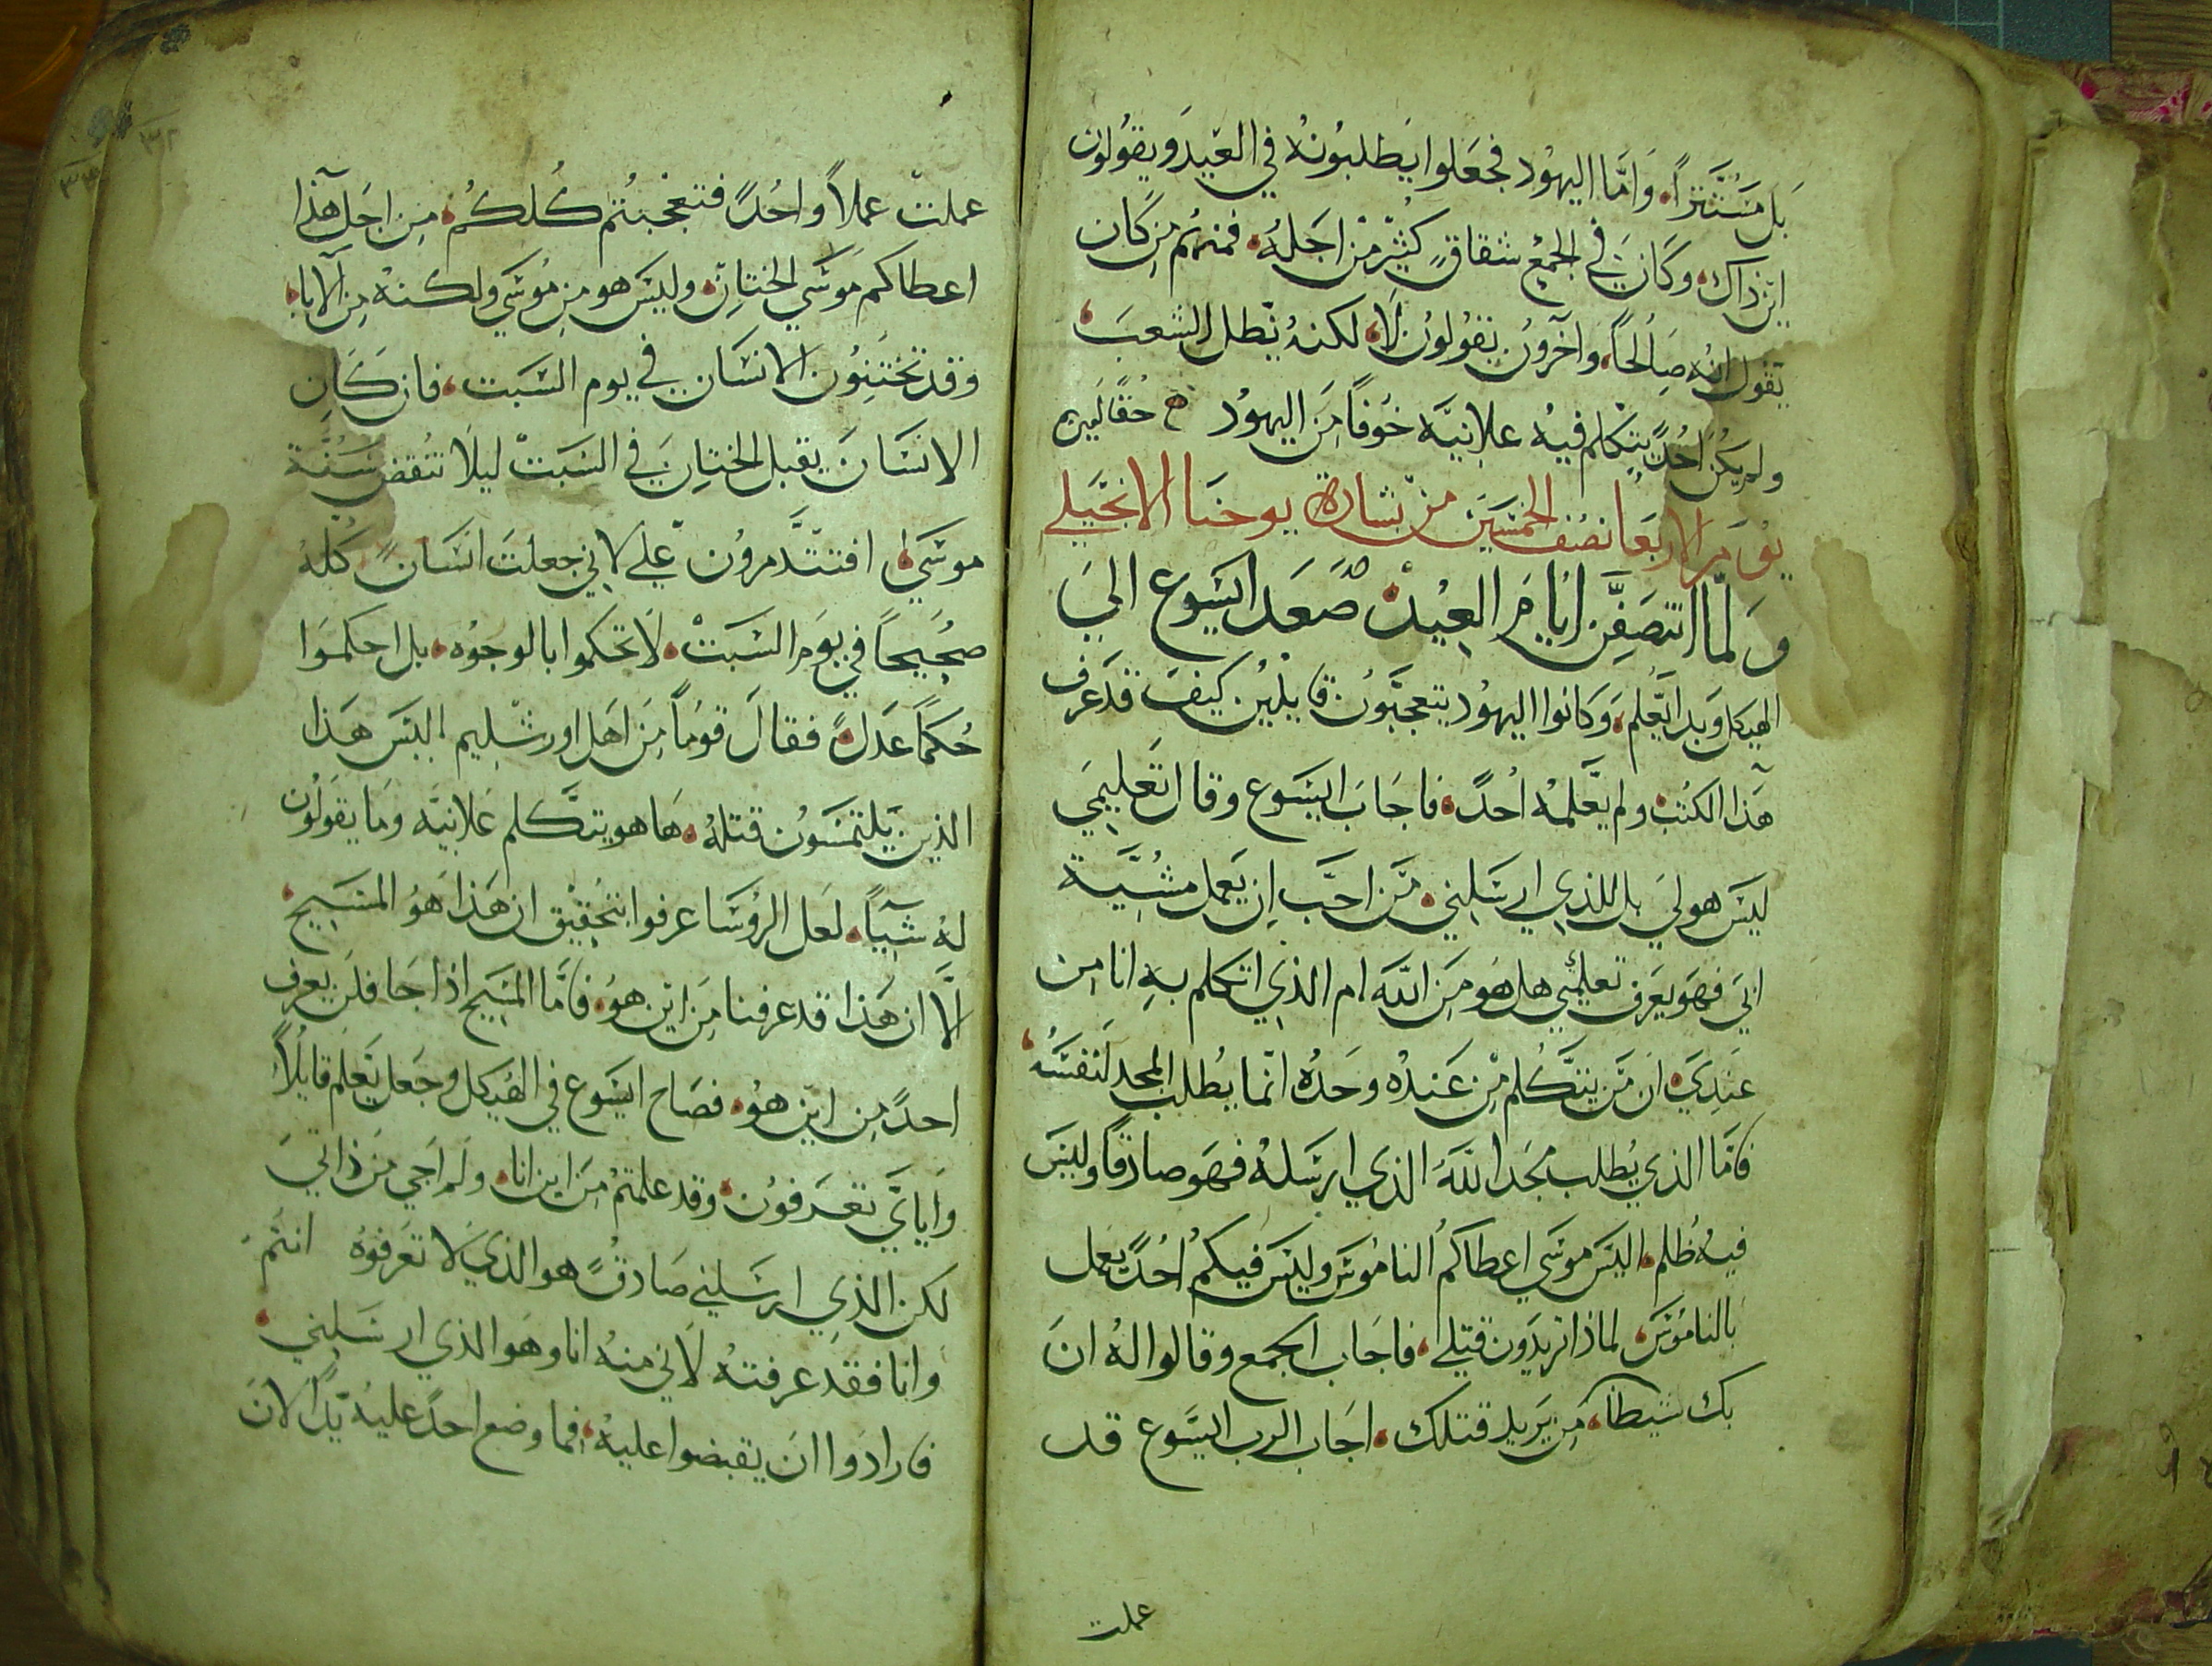 بل مستتراً، واما اليهود فجعلوا يطلبونه في العيد ويقولون
اين ذاك، وكان في الجمع شقاقٍ كثير من اجله، فمنهم من كان
يقول انه صالحاً، وآخرون يقولون لا، لكنه يظل الشعب
ولم يكن احدً يتكلم فيه علانيه خوفاً من اليهود
يوم الاربعا نصف الخمسين من بشارة يوحنا الانجيلي
ولما انتصفن ايام العيد صعد ايسوع الي
الهيكل وبدا يعلم، وكانوا اليهود يتعجبون قايلين كيف قد عرف
هذا الكتب ولم يعلمه احدً، فاجاب ايسوع وقال تعليمي
ليس هو لي بل للذي ارسلني، من احب ان يعمل مشية
ابي فهو يعرف تعليمي هل هو من الله ام الذي اتكلم به انا من
عندي، ان من يتكلم من عنده وحده انما يطلب المجد لنفسه،
فاما الذي يطلب مجد الله الذي ارسله فهو صادقاً وليس
فيه ظلم، اليس موسي اعطاكم الناموس وليس فيكم احدً يعمل
بالناموس، لماذا تريدون قتلي، فاجاب الجمع وقالوا له ان
بك شيطاناً، من يريد قتلك، اجاب الرب ايسوع قد
عملت
عملت عملاً واحدً فتعجبتم كلكم، من اجل هذا
اعطاكم موسي الختان، وليس هو من موسي ولكنه من الابا،
وقد تختنون الانسان في يوم السبت، فان كان
الانسان يقبل الختان في السبت ليلا تنقض سنة
موسي، افتتدمرون علي لاني جعلت انسانً كله
صحيحاً في يوم السبت، لا تحكموا بالوجوه، بل احكموا
حكماً عدلً، فقال قوماً من اهل اورشليم اليس هذا
الذين يلتمسون قتله، ها هو يتكلم علانيه وما يقولون
له شياً، لعل الروسا عرفوا بتحقيق ان هذا هو المسيح،
لا ان هذا قد عرفنا من اين هو، فاما المسيح اذا جا فلن يعرف
احدً من اين هو، فصاح ايسوع في الهيكل وجعل يعلم قايلاً
واياي تعرفون، وقد علمتم من اين انا، ولم اجي من ذاتي
لكن الذي ارسلني صادقً هو الذي لا تعرفوه انتم
وانا فقد عرفته لاني منه انا وهو الذي ارسلني،
فارادوا ان يقبضوا عليه، فما وضع احدً عليه يداً لان